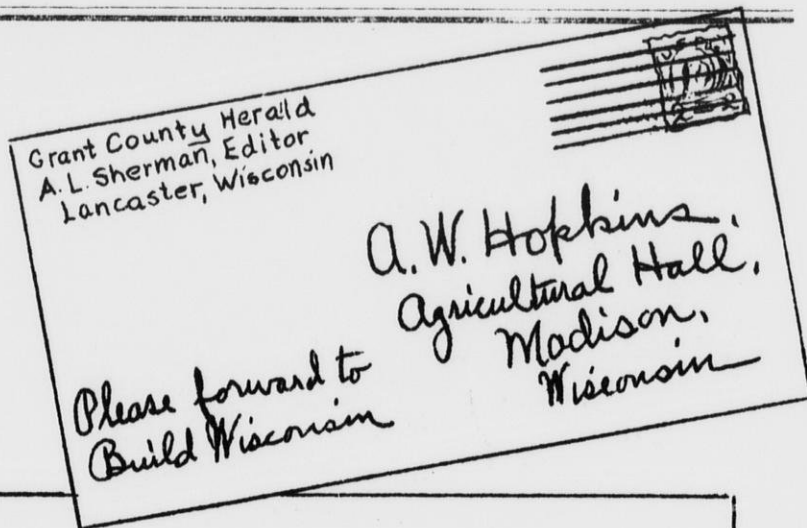 Grant County Herald
A.L. Sherman, Editor
Lancaster, Wisconsin
A.W. Hopkins,
Agricultural Hall,
Madison,
Wisconsin
Please forward to
Build Wisconsin